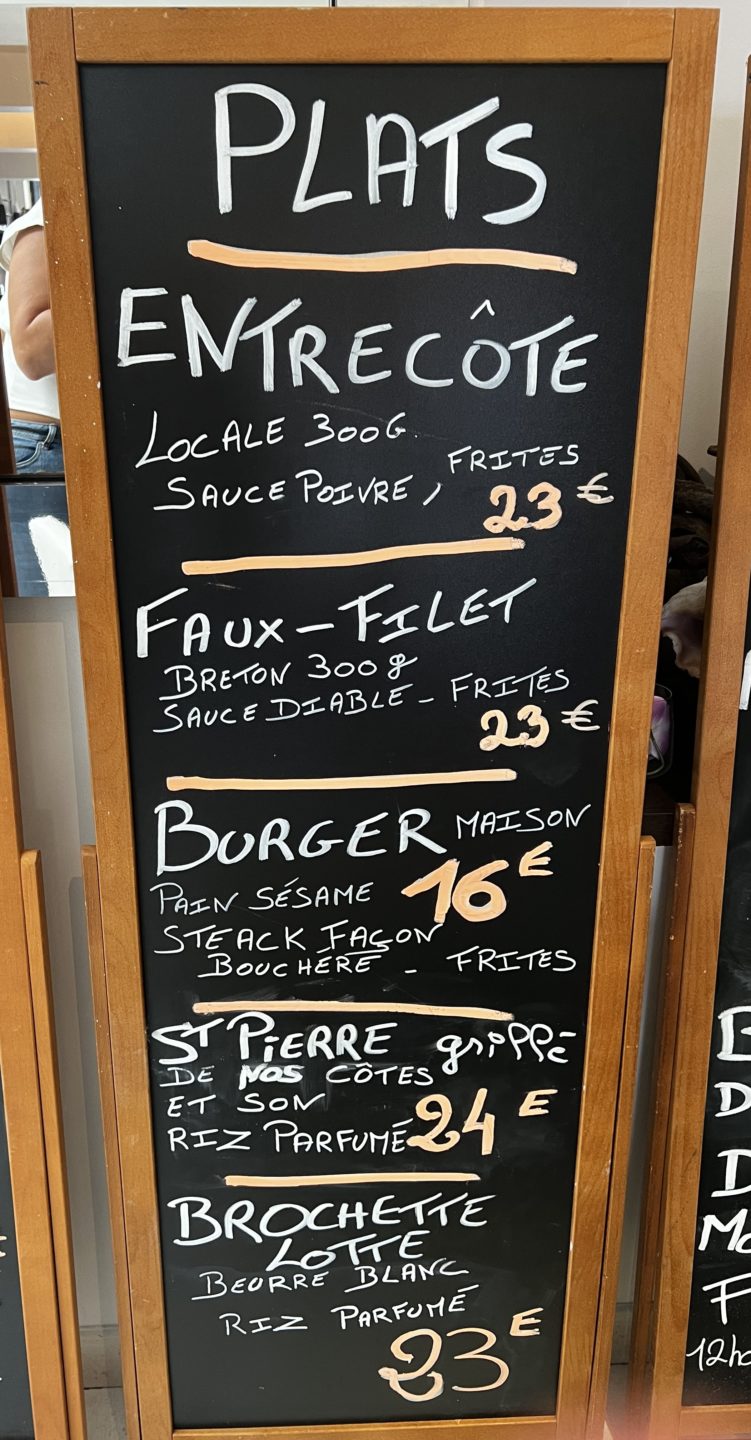 PLATS
ENTRECÔTE
LOCALE 300G.
SAUCE POIVRE, FRITES
23 €
FAUX-FILET
BRETON 300g
SAUCE DIABLE - FRITES
23 €
BURGER MAISON
16 E
PAIN SÉSAME
STEACK FAÇON
BOUCHÈRE - FRITES
ST PIERRE grillé
DE NOS CÔTES
ET SON
RIZ PARFUMÉ 24 E
BROCHETTE
LOTTE
BEURRE BLANC
RIZ PARFUMÉ
23 E